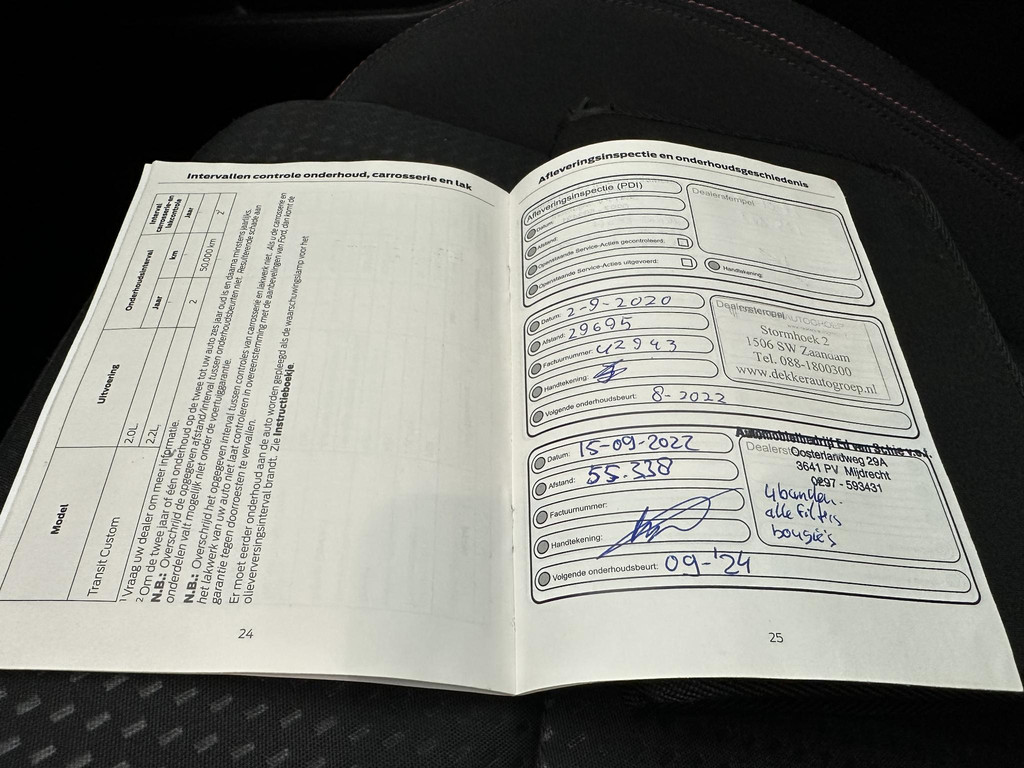 Intervallen controle onderhoud, carrosserie en lak
Model
Uitvoering
Onderhoudsinterval
Interval carrosserie-en lakcontrole
Jaar
km
Jaar
Transit Custom
2.0L
2.2L
2
50.000 km
2
1 Vraag uw dealer om meer informatie.
2 Om de twee jaar of één onderhoud op de twee tot uw auto zes jaar oud is en daarna minstens jaarlijks.
N.B.: Overschrijd de opgegeven afstand/interval tussen onderhoudsbeurten niet. Resulterende schade aan
onderdelen valt mogelijk niet onder de voertuiggarantie.
N.B.: Overschrijd het opgegeven interval tussen controles van carrosserie en lakwerk niet. Als u de carrosserie en
het lakwerk van uw auto niet laat controleren in overeenstemming met de aanbevelingen van Ford, dan komt de
garantie tegen doorroesten te vervallen.
Er moet eerder onderhoud aan de auto worden gepleegd als de waarschuwingslamp voor het
olieverversingsinterval brandt. Zie Instructieboekje.
24
Afleveringsinspectie en onderhoudsgeschiedenis
Afleveringsinspectie (PDI)
Datum:
Afstand:
Openstaande Service-Acties gecontroleerd:
Openstaande Service-Acties uitgevoerd:
Dealerstempel
Handtekening:
Datum: 2-9-2020
Afstand: 29695
Factuurnummer: 42943
Handtekening:
Volgende onderhoudsbeurt: 8-2022
Dealerstempel
Stormhoek 2
1506 SW Zaandam
Tel. 088-1800300
www.dekkerautogroep.nl
Datum: 15-09-2022
Afstand: 55.338
Factuurnummer:
Handtekening:
Volgende onderhoudsbeurt: 09-'24
Automobielbedrijf Ed van Schie v.o.f.
Oosterlandweg 29A
3641 PV Mijdrecht
0297 - 593431
4 banden.
alle filters
bougie's
25